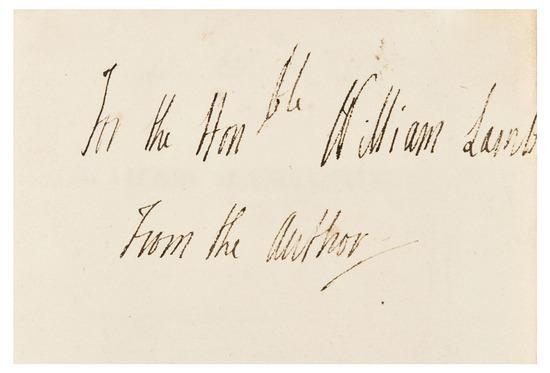 For the Honble William Lamb
From the Author